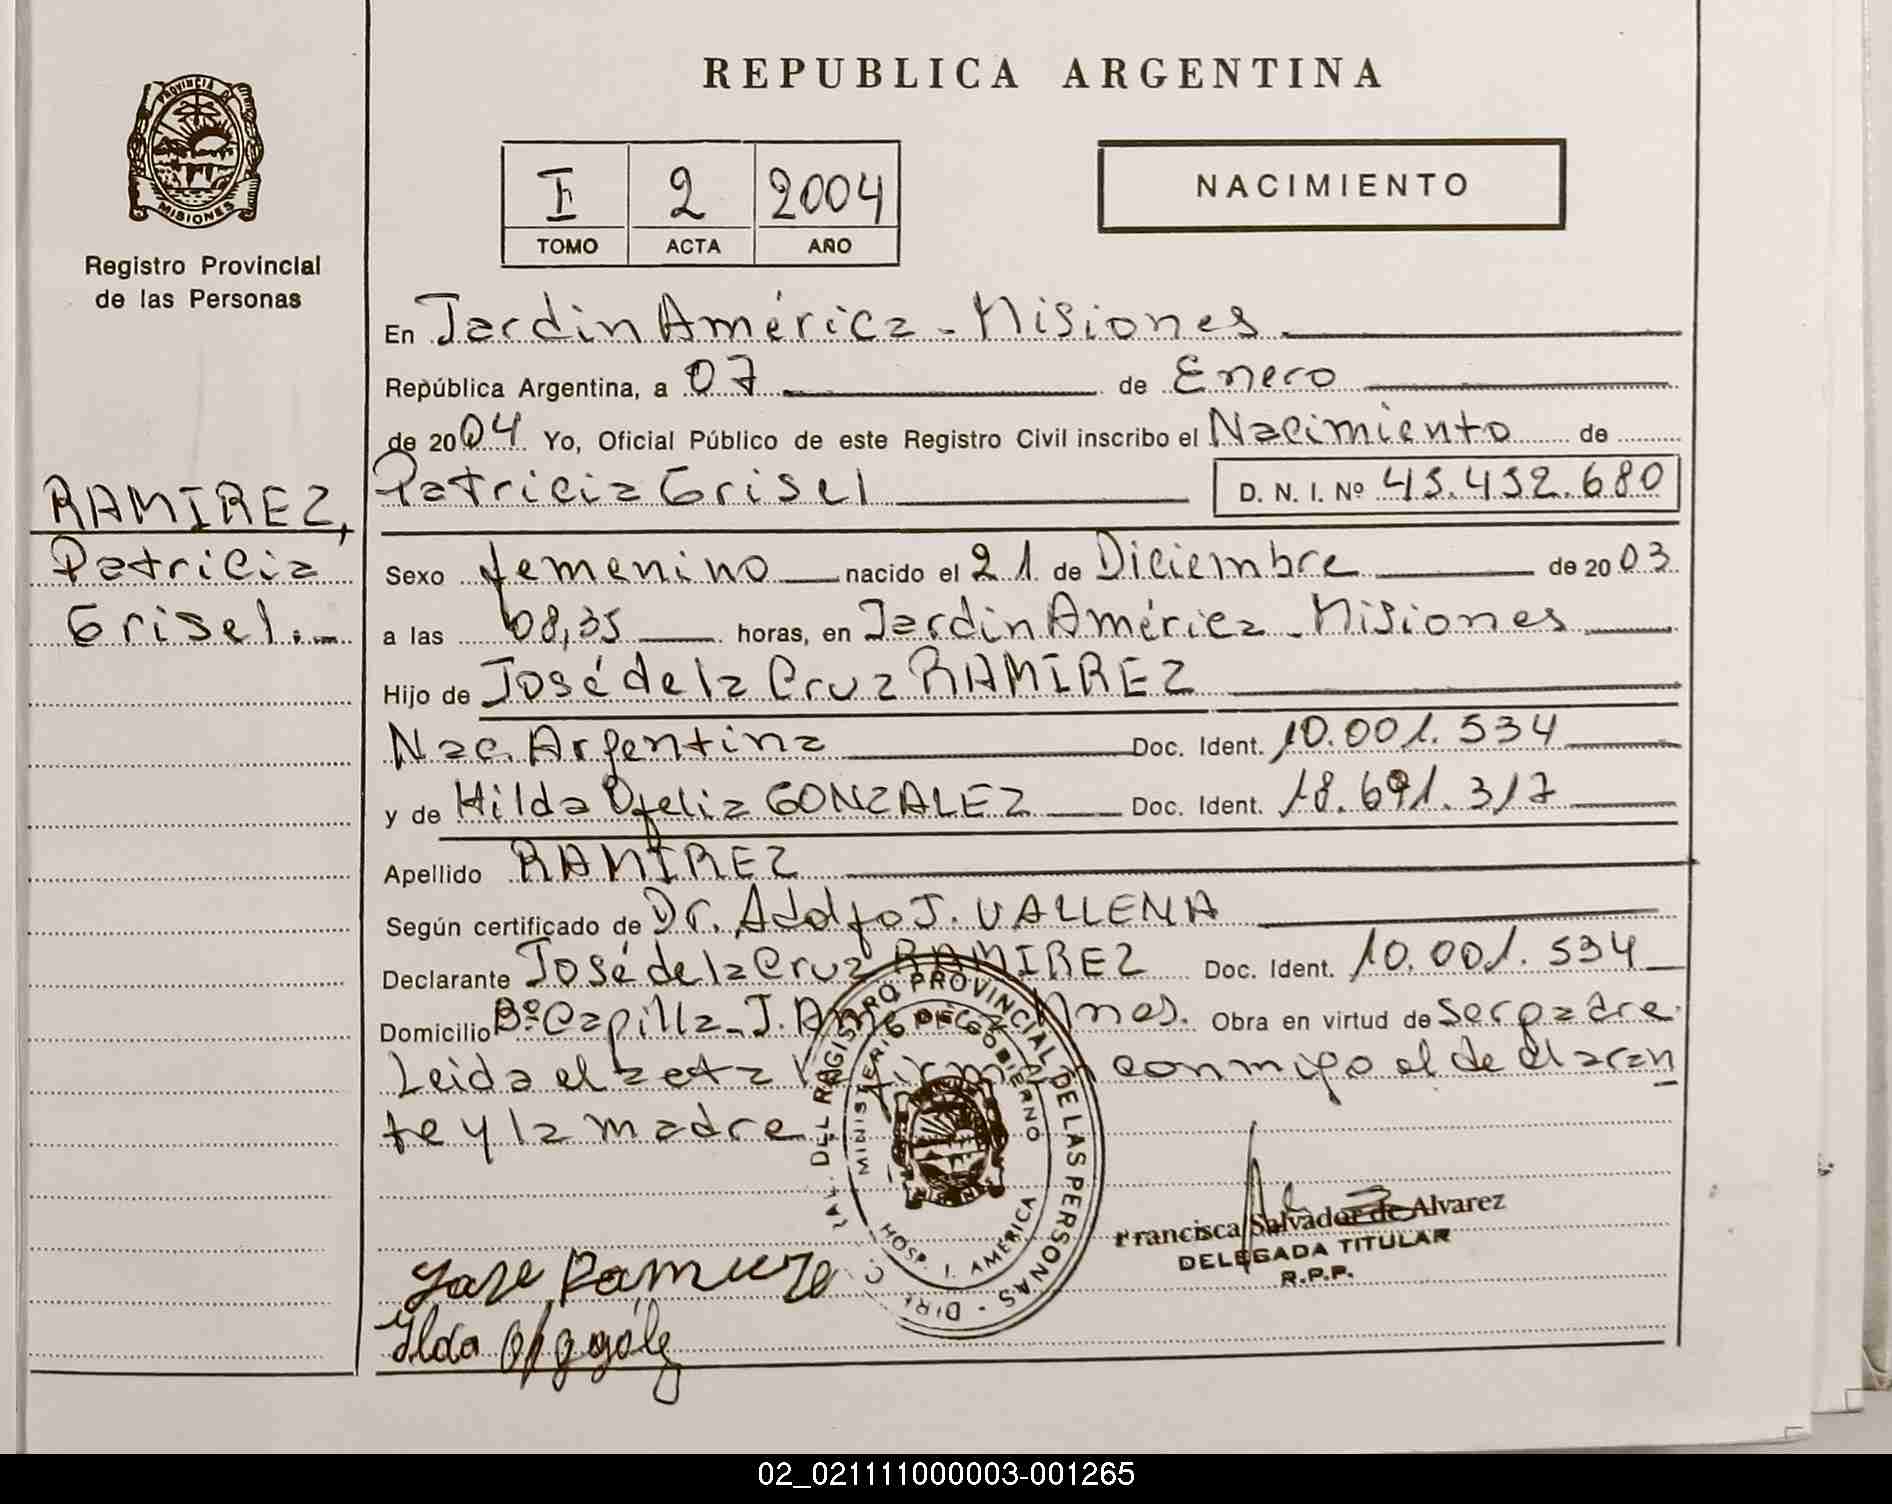 REPUBLICA ARGENTINA
PROVINCIA DE
MISIONES
Registro Provincial
de las Personas
I 2 2004
TOMO ACTA AÑO
NACIMIENTO
En Jardin América - Misiones
República Argentina, a 07 de Enero
de 2004 Yo, Oficial Público de este Registro Civil inscribo el Nacimiento de
Patricia Grisel D. N. I. Nº 45.432.680
RAMIREZ,
Patricia
Grisel.-
Sexo femenino nacido el 21 de Diciembre de 2003
a las 08,35 horas, en Jardin América - Misiones
Hijo de José de la Cruz RAMIREZ
Nac. Argentina Doc. Ident. 10.001.534
y de Hilda Ofelia GONZALEZ Doc. Ident. 18.691.317
Apellido RAMIREZ
Según certificado de Dr. Adolfo J. VALLENA
Declarante José de la Cruz RAMIREZ Doc. Ident. 10.001.534
Domicilio Bº Capilla - J. Mnes. Obra en virtud de ser padre.
Leida el acta firman conmigo el declaran
te y la madre
DEL REGISTRO PROVINCIAL DE LAS PERSONAS
MINISTERIO DE GOBIERNO
HOSP. J. AMERICA
Francisca Salvador de Alvarez
DELEGADA TITULAR
R.P.P.
Jose Ramirez
Ilda
02_021111000003-001265